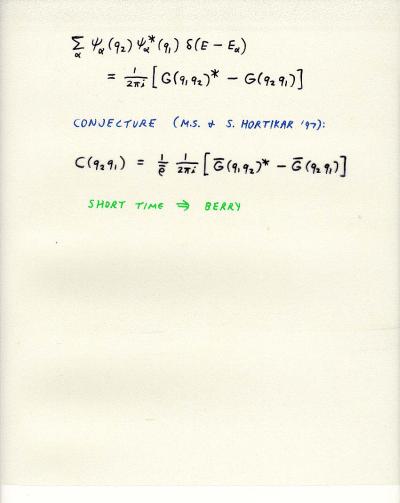 Σ_α ψ_α(q₂) ψ_α*(q₁) δ(E − E_α)
= 1/2πi [G(q₁q₂)* − G(q₂q₁)]
CONJECTURE (M.S. & S. HORTIKAR '97):
C(q₂q₁) = 1/ρ̄ 1/2πi [Ḡ(q₁q₂)* − Ḡ(q₂q₁)]
SHORT TIME ⇒ BERRY